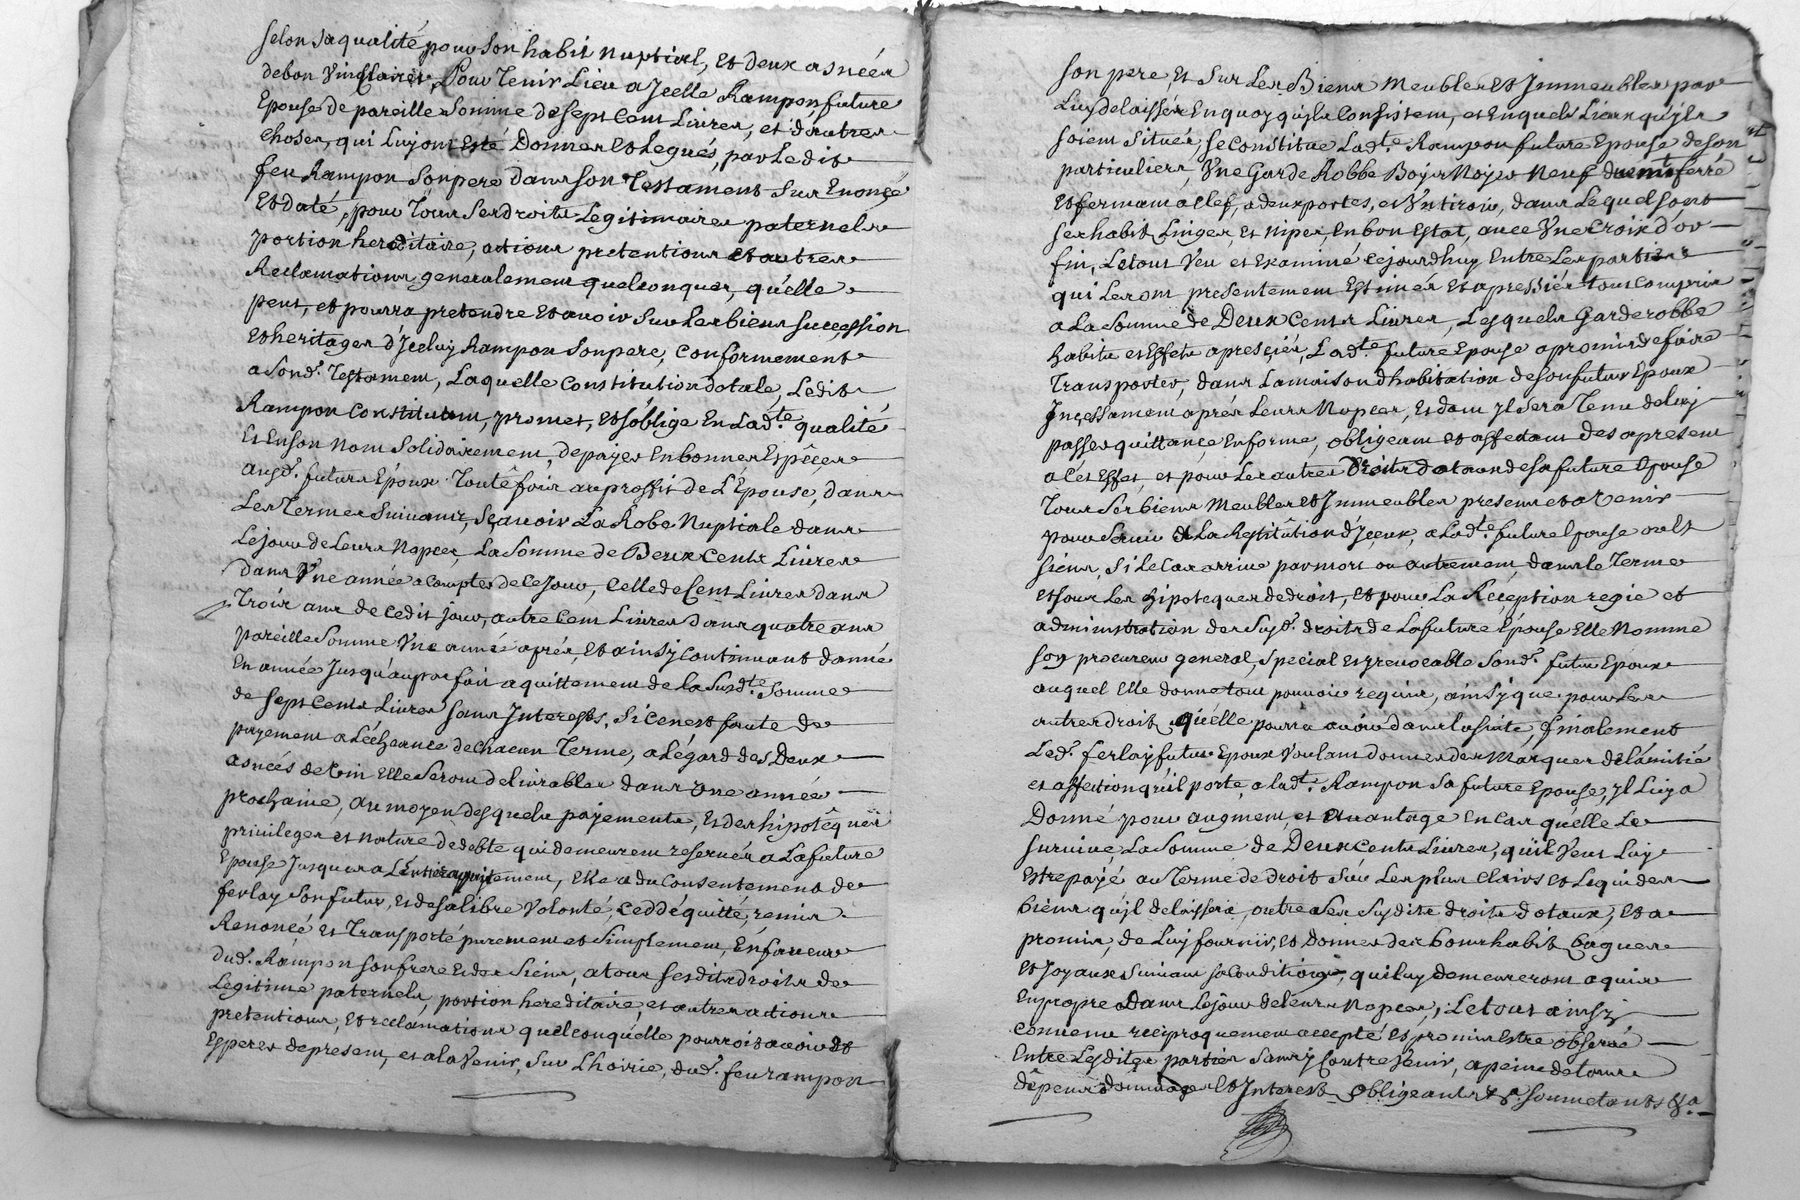 selon sa qualité pour son habit nuptial, et deux asnéés
de bon vin clairet, Pour Tenir Lieu a Jcelle Rampon future
Epouse de pareille somme de sept Cent Livres, et d'autres
choses, qui Luy ont Esté Donnés et Legués, par Le dit
feu Rampon son pere dans son Testament sus Enoncé
Et daté, pour Tous ses droits Legitimaires paternels
portion hereditaire, actions pretentions et autres
Reclamations generalement quelconques, qu'elle
peut, et pourra pretendre et avoir sur Les biens succession
Et heritages d'Jceluy Rampon son pere, conformement
a son d.t Testament, Laquelle Constitution dotale, Ledit
Rampon Constituant, promet, et s'oblige En Lad.te qualité
Et En son nom solidairement, de payer En bonnes Espêces
ausd.s futurs Epoux Toutêfois au proffit de L'Epouse, dans
Les Termes suivants, Sçavoir La Robe Nuptiale dans
Le jour de Leurs Nopces, La somme de Deux Cents Livres
dans Vne année a Compter de Ce Jour, Celle de Cent Livres dans
Trois ans de ce dit jour, autre Cent Livres dans quatre ans
pareille somme Vne année aprés, Et ainsy Continuant d'année
En année Jusqu'au parfait aquittement de la susd.te Somme
de sept Cents Livres sans Interests, si ce n'est faute de
payement a L'écheance de chacun Terme, a Légard des Deux
asnéés de vin Elle seront delivrables dans vne année
prochaine, au moyen desquels payements, Et des hipotêques
privileges et nature de debte qui demeurent reservés a La future
Epouse Jusques a L'Entier aquitement, Elle a du Consentement de
ferlay son futur, et de sa libre Volonté, Ceddé quitté, remis
Renoncé et Transporté purement et simplement, En faveur
dud.t Rampon son frere et des siens, a tous ses dits droits de
Legitime paternels, portion hereditaire, et autres actions
pretentions, et reclamations quelconqu'elle pourroit avoir et
Esperer de present, et a la Venir, sur L'hoirie, dud.t feu rampon
son pere, et sur Les Biens Meubles et Jmmeubles par
Luy delaissés En quoy qu'ils Consistent, et En quels Lieux qu'ils
soient situés, se constitue Lad.te Rampon future Epouse de son
particulier, Vne Garde Robbe Bois Noyer Neuf ferré
Et fermant a Clef, a deux portes, et Vn tiroir, dans Lequel sont
ses habits Linges, et nipes, En bon Estat, avec Vne Croix d'or
fin, Le tout Veu et Examiné cejourdhuy Entre Les parties
qui Les ont presentement Estimés et apressiés tout Compris
a La somme de Deux Cents Livres, Lesquels Garderobbe
habits et Effets apresciés, Lad.te future Epouse a promis de faire
Transporter, dans La maison d'habitation de son futur Epoux
Jncessament aprés Leurs Nopces, Et dont Jl sera Tenu de luy
passer quittance En forme, obligeant et affectant des a present
a Cet Effet, et pour Les autres Droits dotaux de sa future Epouse
Tous ses biens Meubles et Jmmeubles presents et a venir
pour servir a La Restitution d'Jceux, a Lad.te future Epouse ou ls
siens, si Le Cas arrive par mort ou autrement, dans le Terme
et sous Les hipoteques de droit, Et pour La Réception regie et
administration des susd.s droits de La future Epouse Elle Nomme
son procureur general, special et jrrevocable son d.t futur Epoux
auquel Elle donne tout pouvoir requis, ainsy que pour Les
autres droits qu'elle pourra avoir dans la suite, finalement
Led.t ferlay futur Epoux Voulant donner des Marques de l'amitié
et affection qu'il porte a lad.te Rampon sa future Epouse, Jl Luy a
Donné pour augment, et avantage En Cas quelle Le
survive, La somme de Deux Cents Livres, qu'il Veut Luy
Estre payé au Terme de droit sur Les plus Clairs et Liquides
biens qu'jl delaissera, outre Les susdits droits dotaux, et a
promis, de Luy fournir, et donner des bons habits bagues
et Joyaux suivant sa Condition, qui luy demeureront aquis
En propre Dans Le jour de leurs Nopces, Le tout ainsy
Convenu reciproquement accepté et promis Estre observé
Entre Les dites parties sans y Contrevenir, a peine de tous
dêpens dommages et Jnterests obligeants &.a soumetants &.a